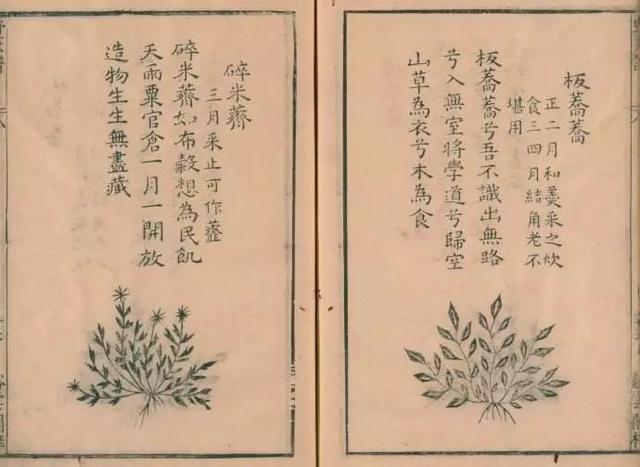 板蕎蕎
正二月和羹采之炊
食三四月結角老不
堪用
板蕎蕎兮吾不識出無路
兮入無室將學道兮歸空
山草為衣兮木為食
碎米薺
三月采止可作虀
碎米薺如布穀想為民飢
天雨粟官倉一月一開放
造物生生無盡藏